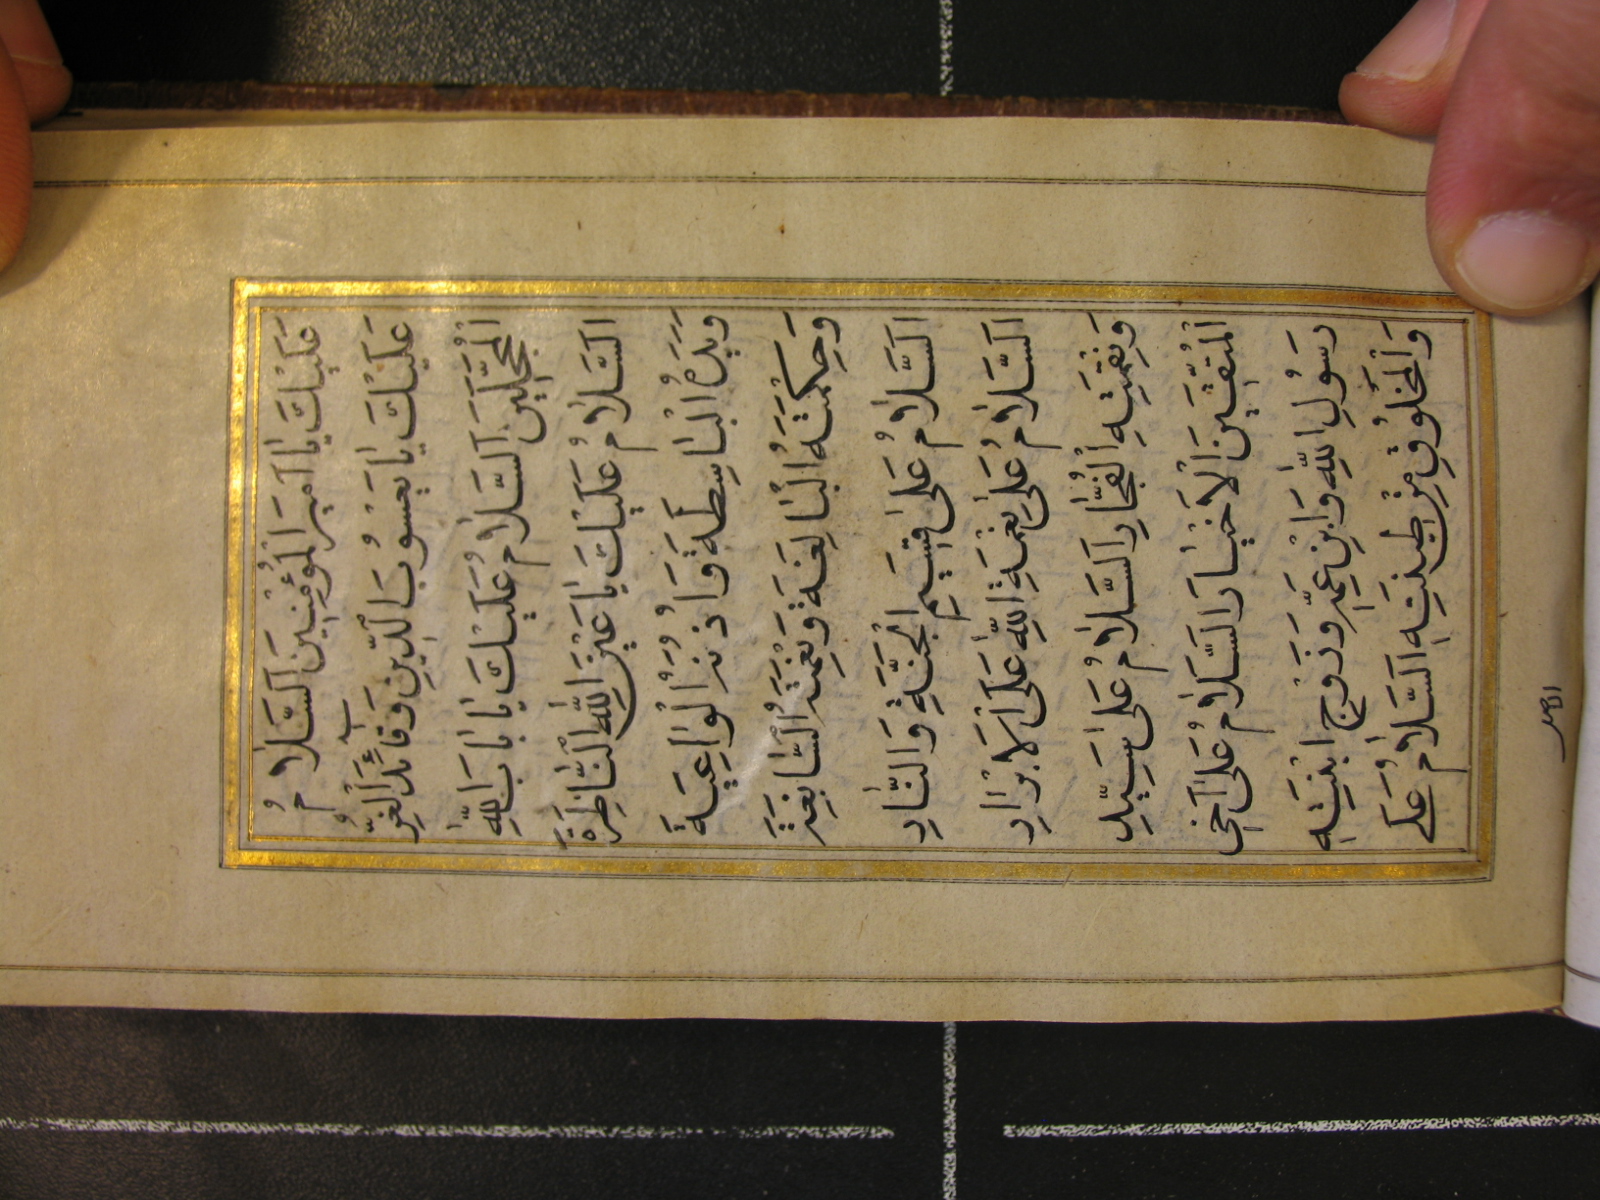 عَلَيْكَ يَا اَمِيرَ الْمُؤْمِنِينَ اَلسَّلَامُ
عَلَيْكَ يَا يَعْسُوبَ الدِّينِ وَقَائِدَ الْغُرِّ
الْمُحَجَّلِينَ اَلسَّلَامُ عَلَيْكَ يَا بَابَ اللّٰهِ
اَلسَّلَامُ عَلَيْكَ يَا عَيْنَ اللّٰهِ النَّاظِرَةَ
وَيَدَهُ الْبَاسِطَةَ وَاُذُنَهُ الْوَاعِيَةَ
وَحِكْمَتَهُ الْبَالِغَةَ وَنِعْمَتَهُ السَّابِغَةَ
اَلسَّلَامُ عَلٰى قَسِيمِ الْجَنَّةِ وَالنَّارِ
اَلسَّلَامُ عَلٰى نِعْمَةِ اللّٰهِ عَلَى الْاَبْرَارِ
وَنِقْمَتِهِ الْفُجَّارِ اَلسَّلَامُ عَلٰى سَيِّدِ
الْمُتَّقِينَ الْاَخْيَارِ اَلسَّلَامُ عَلٰى اَخِي
رَسُولِ اللّٰهِ وَابْنِ عَمِّهِ وَزَوْجِ ابْنَتِهِ
وَالْمَخْلُوقِ مِنْ طِينَتِهِ اَلسَّلَامُ عَلَى
الاصل